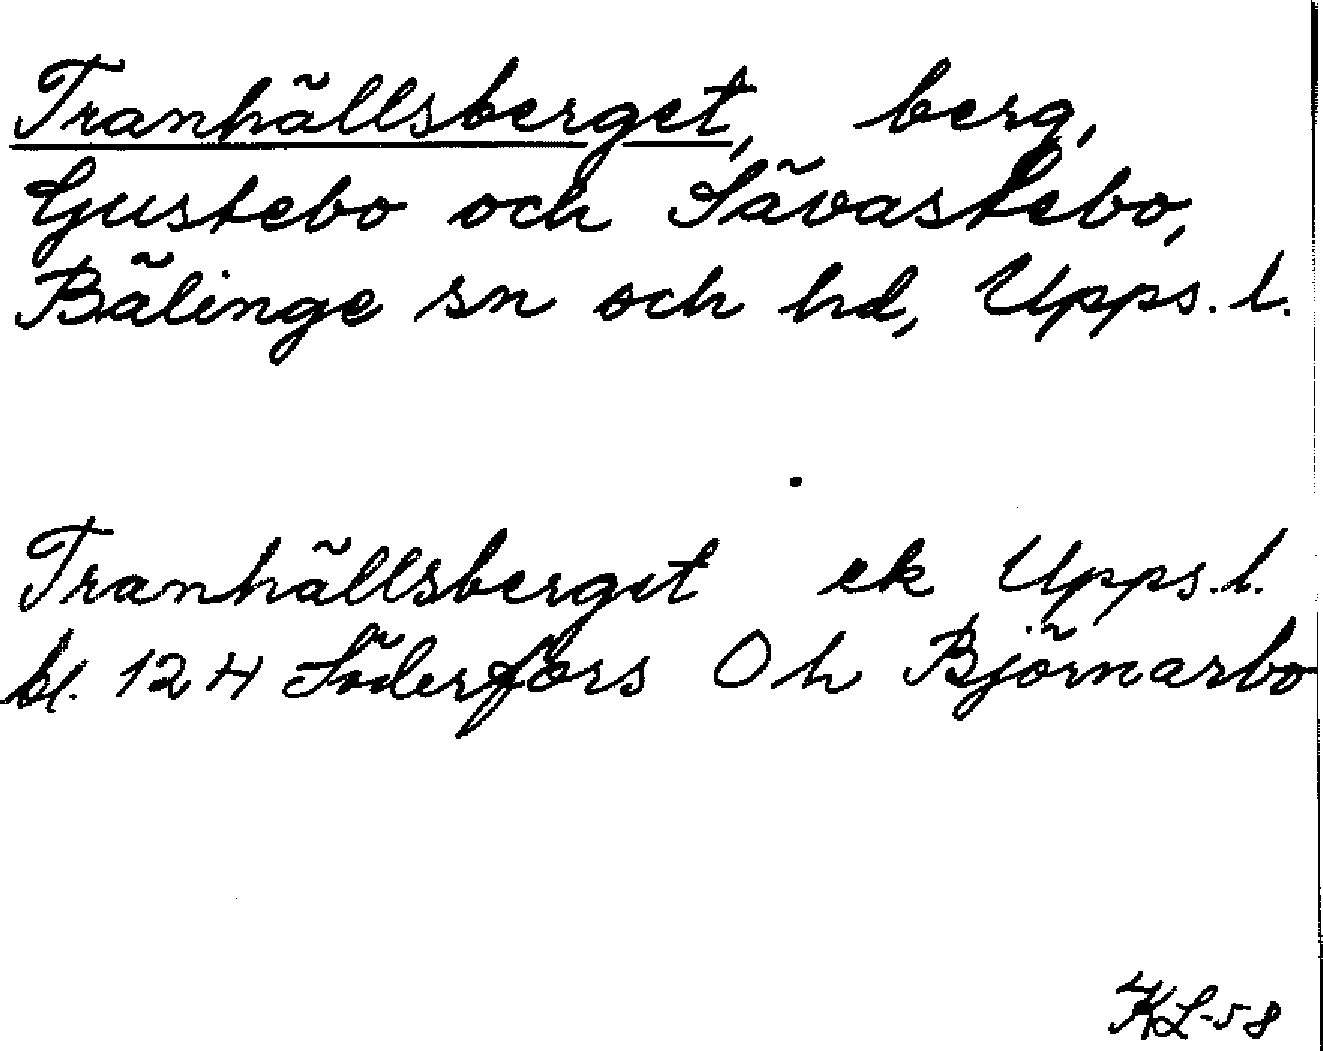 Tranhällsberget, berg,
Gustebo och Sävastebo,
Bälinge sn och hd, Upps. l.
Tranhällsberget ek Upps. l.
bl. 124 Söderfors Oh Björnarbo
KL-58